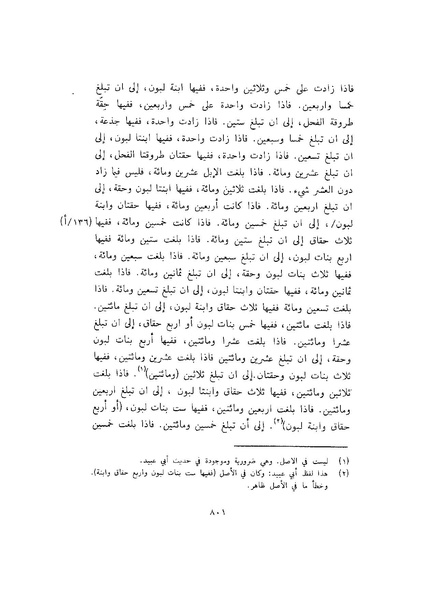 فاذا زادت على خمس وثلاثين واحدة، ففيها ابنة لبون، إلى ان تبلغ
خمسا واربعين. فاذا زادت واحدة على خمس واربعين، ففيها حِقّة
طروقة الفحل، إلى ان تبلغ ستين. فاذا زادت واحدة، ففيها جذعة،
إلى ان تبلغ خمسا وسبعين. فاذا زادت واحدة، ففيها ابنتا لبون، إلى
ان تبلغ تسعين. فاذا زادت واحدة، ففيها حقتان طروقتا الفحل، إلى
ان تبلغ عشرين ومائة. فاذا بلغت الإبل عشرين ومائة، فليس فيا زاد
دون العشر شيء. فاذا بلغت ثلاثين ومائة، ففيها ابنتا لبون وحقة، إلى
ان تبلغ اربعين ومائة. فاذا كانت أربعين ومائة، ففيها حقتان وابنة
لبون/، إلى ان تبلغ خمسين ومائة. فاذا كانت خمسين ومائة، ففيها (١٣٦/أ)
ثلاث حقاق إلى ان تبلغ ستين ومائة. فاذا بلغت ستين ومائة ففيها
اربع بنات لبون، إلى ان تبلغ سبعين ومائة. فاذا بلغت سبعين ومائة،
ففيها ثلاث بنات لبون وحقة، إلى ان تبلغ ثمانين ومائة. فاذا بلغت
ثمانين ومائة، ففيها حقتان وابنتا لبون، إلى ان تبلغ تسعين ومائة. فاذا
بلغت تسعين ومائة ففيها ثلاث حقاق وابنة لبون، إلى ان تبلغ مائتين.
فاذا بلغت مائتين، ففيها خمس بنات لبون أو اربع حقاق، إلى ان تبلغ
عشرا ومائتين. فاذا بلغت عشرا ومائتين، ففيها أربع بنات لبون
وحقة، إلى ان تبلغ عشرين ومائتين فاذا بلغت عشرين ومائتين، ففيها
ثلاث بنات لبون وحقتان.إلى ان تبلغ ثلاثين (ومائتين)(١). فاذا بلغت
ثلاثين ومائتين، ففيها ثلاث حقاق وابنتا لبون ، إلى ان تبلغ اربعين
ومائتين. فاذا بلغت اربعين ومائتين، ففيها ست بنات لبون، (أو أربع
حقاق وابنة لبون)(٢). إلى أن تبلغ خمسين ومائتين. فاذا بلغت خمسين
(١) ليست في الاصل. وهي ضرورية وموجودة في حديث أبي عبيد.
(٢) هذا لفظ أبي عبيد: وكان في الأصل (ففيها ست بنات لبون واربع حقاق وابنة).
وخطأ ما في الأصل ظاهر.
٨٠١